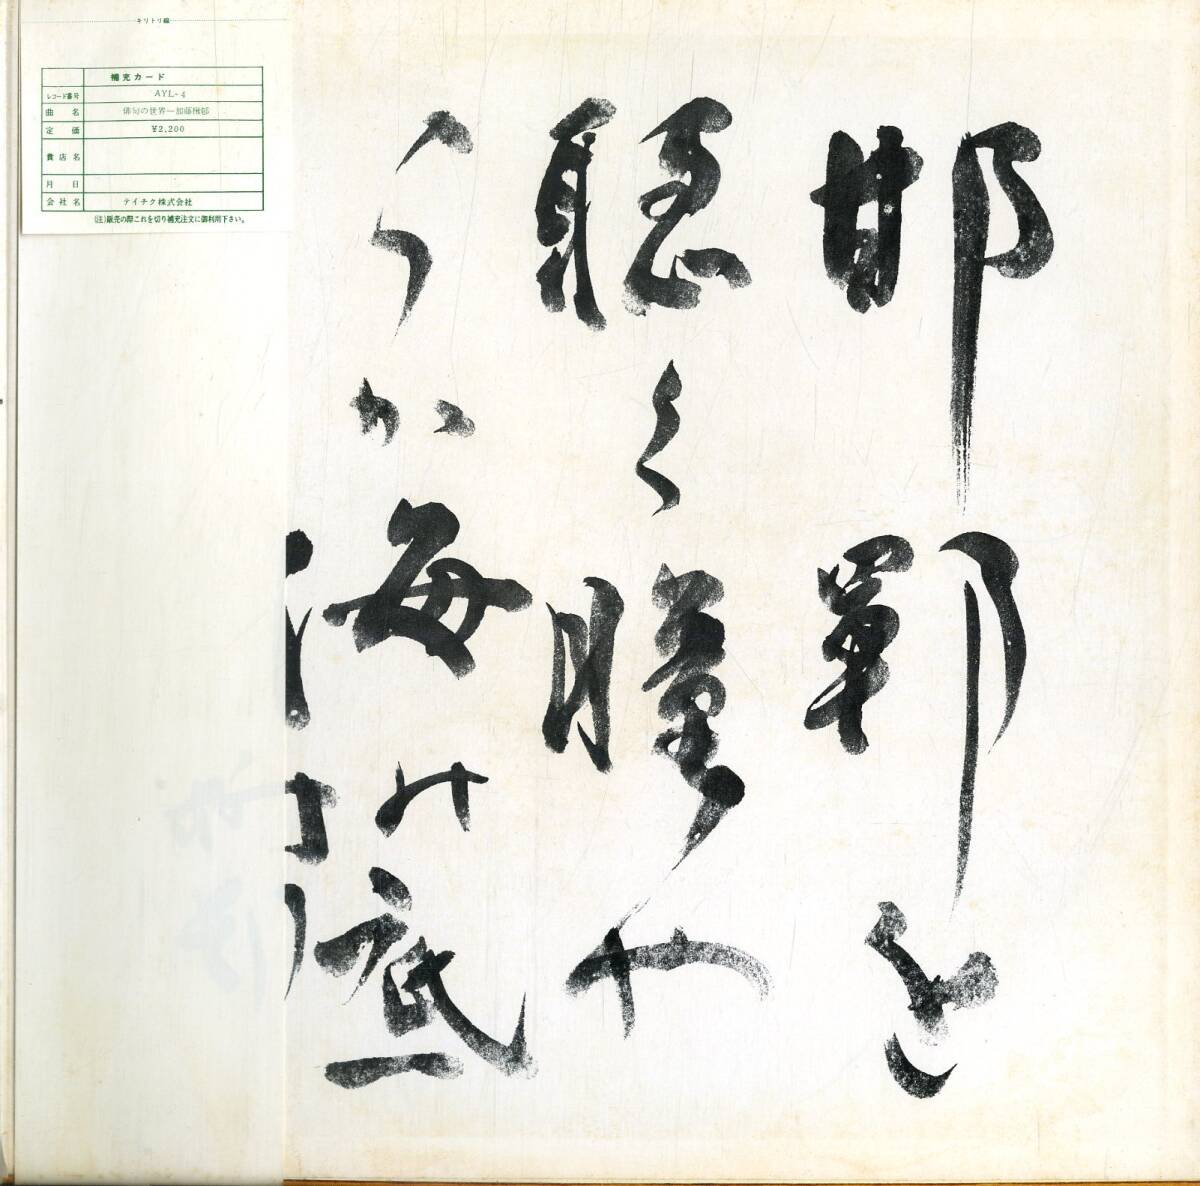 キリトリ線
補充カード
レコード番号 AYL-4
曲名 俳句の世界―加藤楸邨
定価 ¥2,200
貴店名
月日
会社名 テイチク株式会社
(注)販売の際これを切り補充注文に御利用下さい。
邯鄲を
聴く瞳や
うか海の底